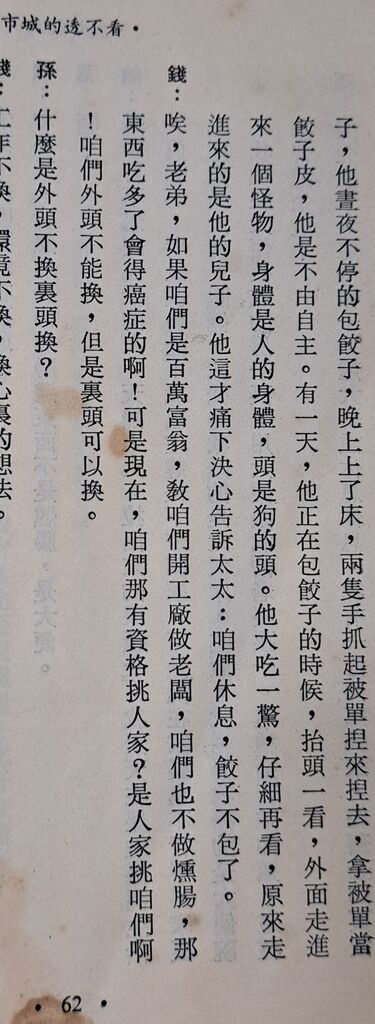 看不透的城市•
子，他晝夜不停的包餃子，晚上上了床，兩隻手抓起被單揑來揑去，拿被單當
餃子皮，他是不由自主。有一天，他正在包餃子的時候，抬頭一看，外面走進
來一個怪物，身體是人的身體，頭是狗的頭。他大吃一驚，仔細再看，原來走
進來的是他的兒子。他這才痛下決心告訴太太：咱們休息，餃子不包了。
錢：唉，老弟，如果咱們是百萬富翁，敎咱們開工廠做老闆，咱們也不做燻腸，那
東西吃多了會得癌症的啊！可是現在，咱們那有資格挑人家？是人家挑咱們啊
！咱們外頭不能換，但是裏頭可以換。
孫：什麼是外頭不換裏頭換？
錢：工作不換，環境不換，換心裏的想法。
• 62 •